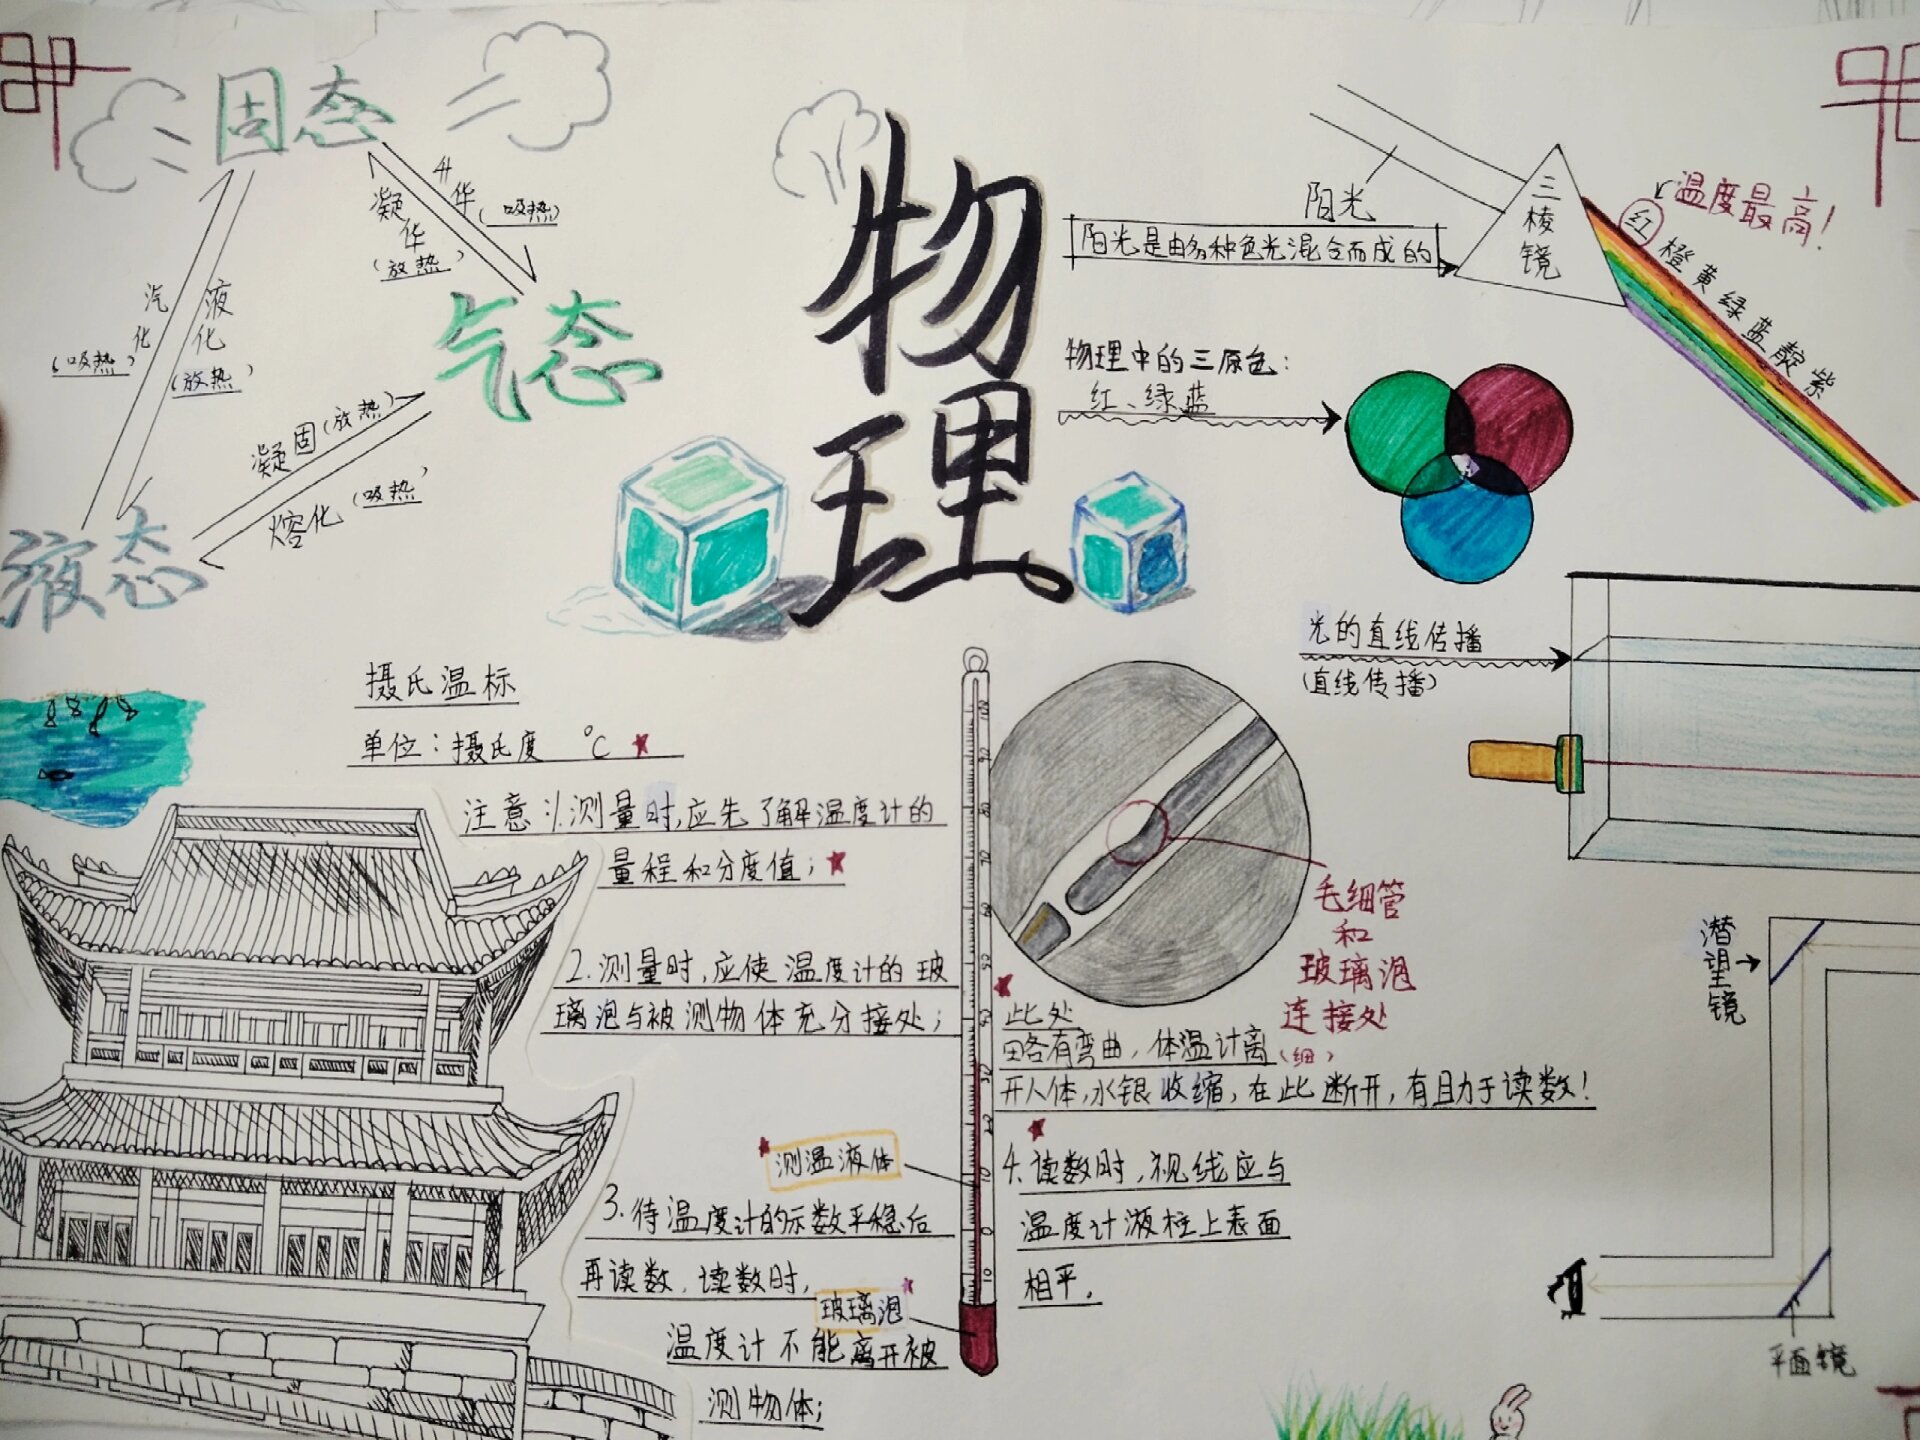 固态
升华
(吸热)
凝华
(放热)
汽化
(吸热)
液化
(放热)
气态
凝固(放热)
熔化(吸热)
液态
物理
阳光
阳光是由多种色光混合而成的
三棱镜
温度最高!
红橙黄绿蓝靛紫
物理中的三原色:
红、绿蓝
光的直线传播
(直线传播)
摄氏温标
单位:摄氏度 °C
注意:1.测量时,应先了解温度计的
量程和分度值;
2.测量时,应使温度计的玻
璃泡与被测物体充分接处;
3.待温度计的示数平稳后
再读数.读数时,
温度计不能离开被
测物体;
测温液体
玻璃泡
毛细管
和
玻璃泡
连接处
(细)
此处
略有弯曲,体温计离
开人体,水银收缩,在此断开,有且力于读数!
4.读数时,视线应与
温度计液柱上表面
相平.
潜望镜
平面镜